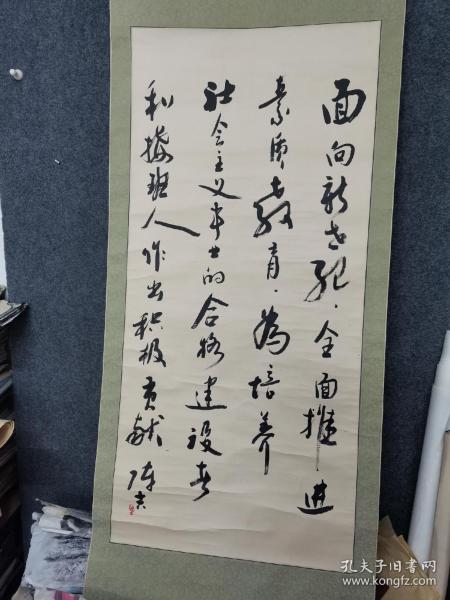 面向新世纪，全面推进
素质教育，为培养
社会主义事业的合格建设者
和接班人作出积极贡献
孔夫子旧书网
www.kongfz.com